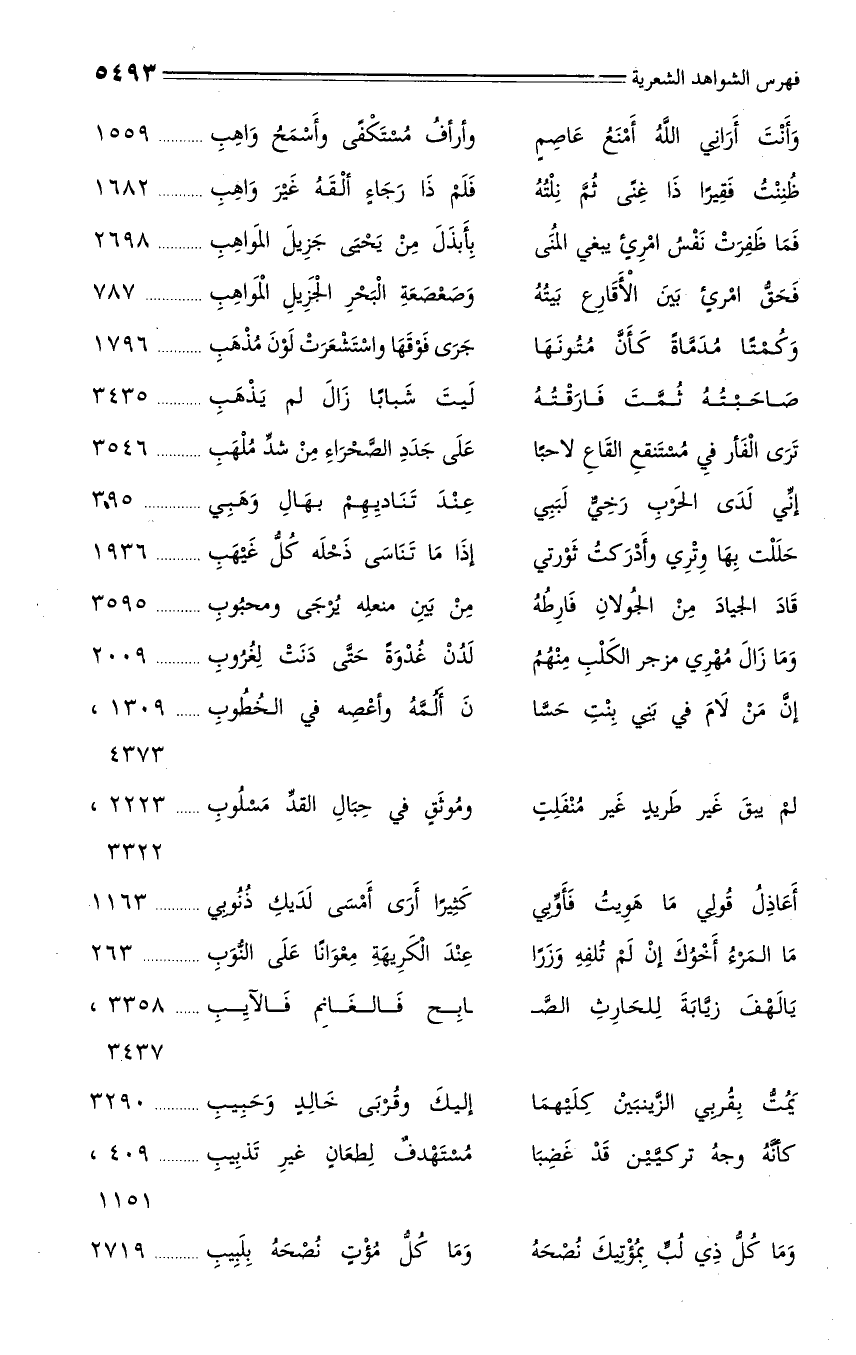 فهرس الشواهد الشعرية ٥٤٩٣
وَأَنْتَ أَرَانِي اللَّهُ أَمْنَعُ عَاصِمٍ وأرأفُ مُسْتَكْفًى وأَسْمَحُ وَاهِبِ .......... ١٥٥٩
ظُنِنْتُ فَقِيرًا ذَا غِنًى ثُمَّ نِلْتُهُ فَلَمْ ذَا رَجَاءٍ ألْقَهُ غَيْرَ وَاهِبِ .......... ١٦٨٢
فَمَا ظَفِرَتْ نَفْسُ امْرِئٍ يبغي المُنَى بِأَبذَلَ مِنْ يَحْيَى جَزِيلَ المَواهِبِ .......... ٢٦٩٨
فَحَقُّ امْرِئٍ بَيَنَ الْأَقَارِعِ بَيتُهُ وَصَعْصَعَةِ الْبَحْرِ الْجَزِيلِ الْمَواهِبِ .......... ٧٨٧
وَكُمْتًا مُدَمَّاةً كَأَنَّ مُتُونَهَا جَرَى فَوْقَهَا واسْتَشْعَرَتْ لَوْنَ مُذْهَبِ .......... ١٧٩٦
صَاحَبْتُهُ ثُمَّتَ فَارَقْتُهُ لَيتَ شَبابًا زَالَ لم يَذْهَبِ .......... ٣٤٣٥
تَرَى الْفَأر في مُسْتَنقعِ القَاعِ لاحبًا عَلَى جَدَدِ الصَّحْرَاءِ مِنْ شدِّ مُلْهَبِ .......... ٣٥٤٦
إنِّي لَدَى الحَرْبِ رَخِيُّ لَبَبِي عِنْدَ تَنَاديهِمْ بهَالِ وَهَبِي .......... ٣٠٩٥
حَلَلْت بِهَا وِتْرِي وأَدْرَكتُ ثَوْرتي إذَا مَا تَنَاسَى ذَحْلَه كُلُّ غَيْهَبِ .......... ١٩٣٦
قَادَ الجيادَ مِنْ الجُولانِ فَارِطُهُ مِنْ بَينِ منعلِه يُرْجَى ومحبُوبِ .......... ٣٥٩٥
وَمَا زَالَ مُهْرِي مزجر الكَلْبِ مِنْهُمُ لَدُنْ غُدْوَةً حَتَّى دَنَتْ لِغُرُوبِ .......... ٢٠٠٩
إنَّ مَنْ لَامَ في بَنِي بِنْتِ حَسَّا نَ أَلُمْهُ وأعْصِه في الخُطُوبِ ...... ١٣٠٩ ،
٤٣٧٣
لمْ يبقَ غَير طَريدٍ غَير مُنْفَلِتٍ ومُوثَقٍ في حِبَالِ القدِّ مَسْلُوبِ ...... ٢٢٢٣ ،
٣٣٢٢
أَعَاذِلُ قُولي مَا هَوِيتُ فَأَوِّبي كَثِيرًا أرَى أَمْسَى لَدَيكِ ذُنُوبي .......... ١١٦٣
مَا المَرْءُ أَخْوُكَ إنْ لَمْ تُلفِهِ وَزَرًا عِنْدَ الْكَرِيهَةِ مِعْوَانًا عَلَى النُّوَبِ .......... ٢٦٣
يَالَهْفَ زيَّابَةَ لِلحَارثِ الصَّـ ـابِحِ فَالغَانِمِ فَالآيِبِ ...... ٣٣٥٨ ،
٣٤٣٧
يَمُتُّ بِقُربِي الزَّينبَيْنِ كِلَيْهمَا إليكَ وقُرْبَى خَالِدٍ وَحَبِيبِ .......... ٣٢٩٠
كأنَّهُ وجهُ تركيَّيْن قَدْ غَضِبَا مُسْتَهْدفٌ لِطعَانٍ غيرِ تَذبِيبِ ........ ٤٠٩ ،
١١٥١
وَمَا كُلُّ ذِي لُبٍّ بِمُؤْتِيكَ نُصْحَهُ وَمَا كُلُّ مُؤْتٍ نُصْحَهُ بِلَبِيبِ .......... ٢٧١٩